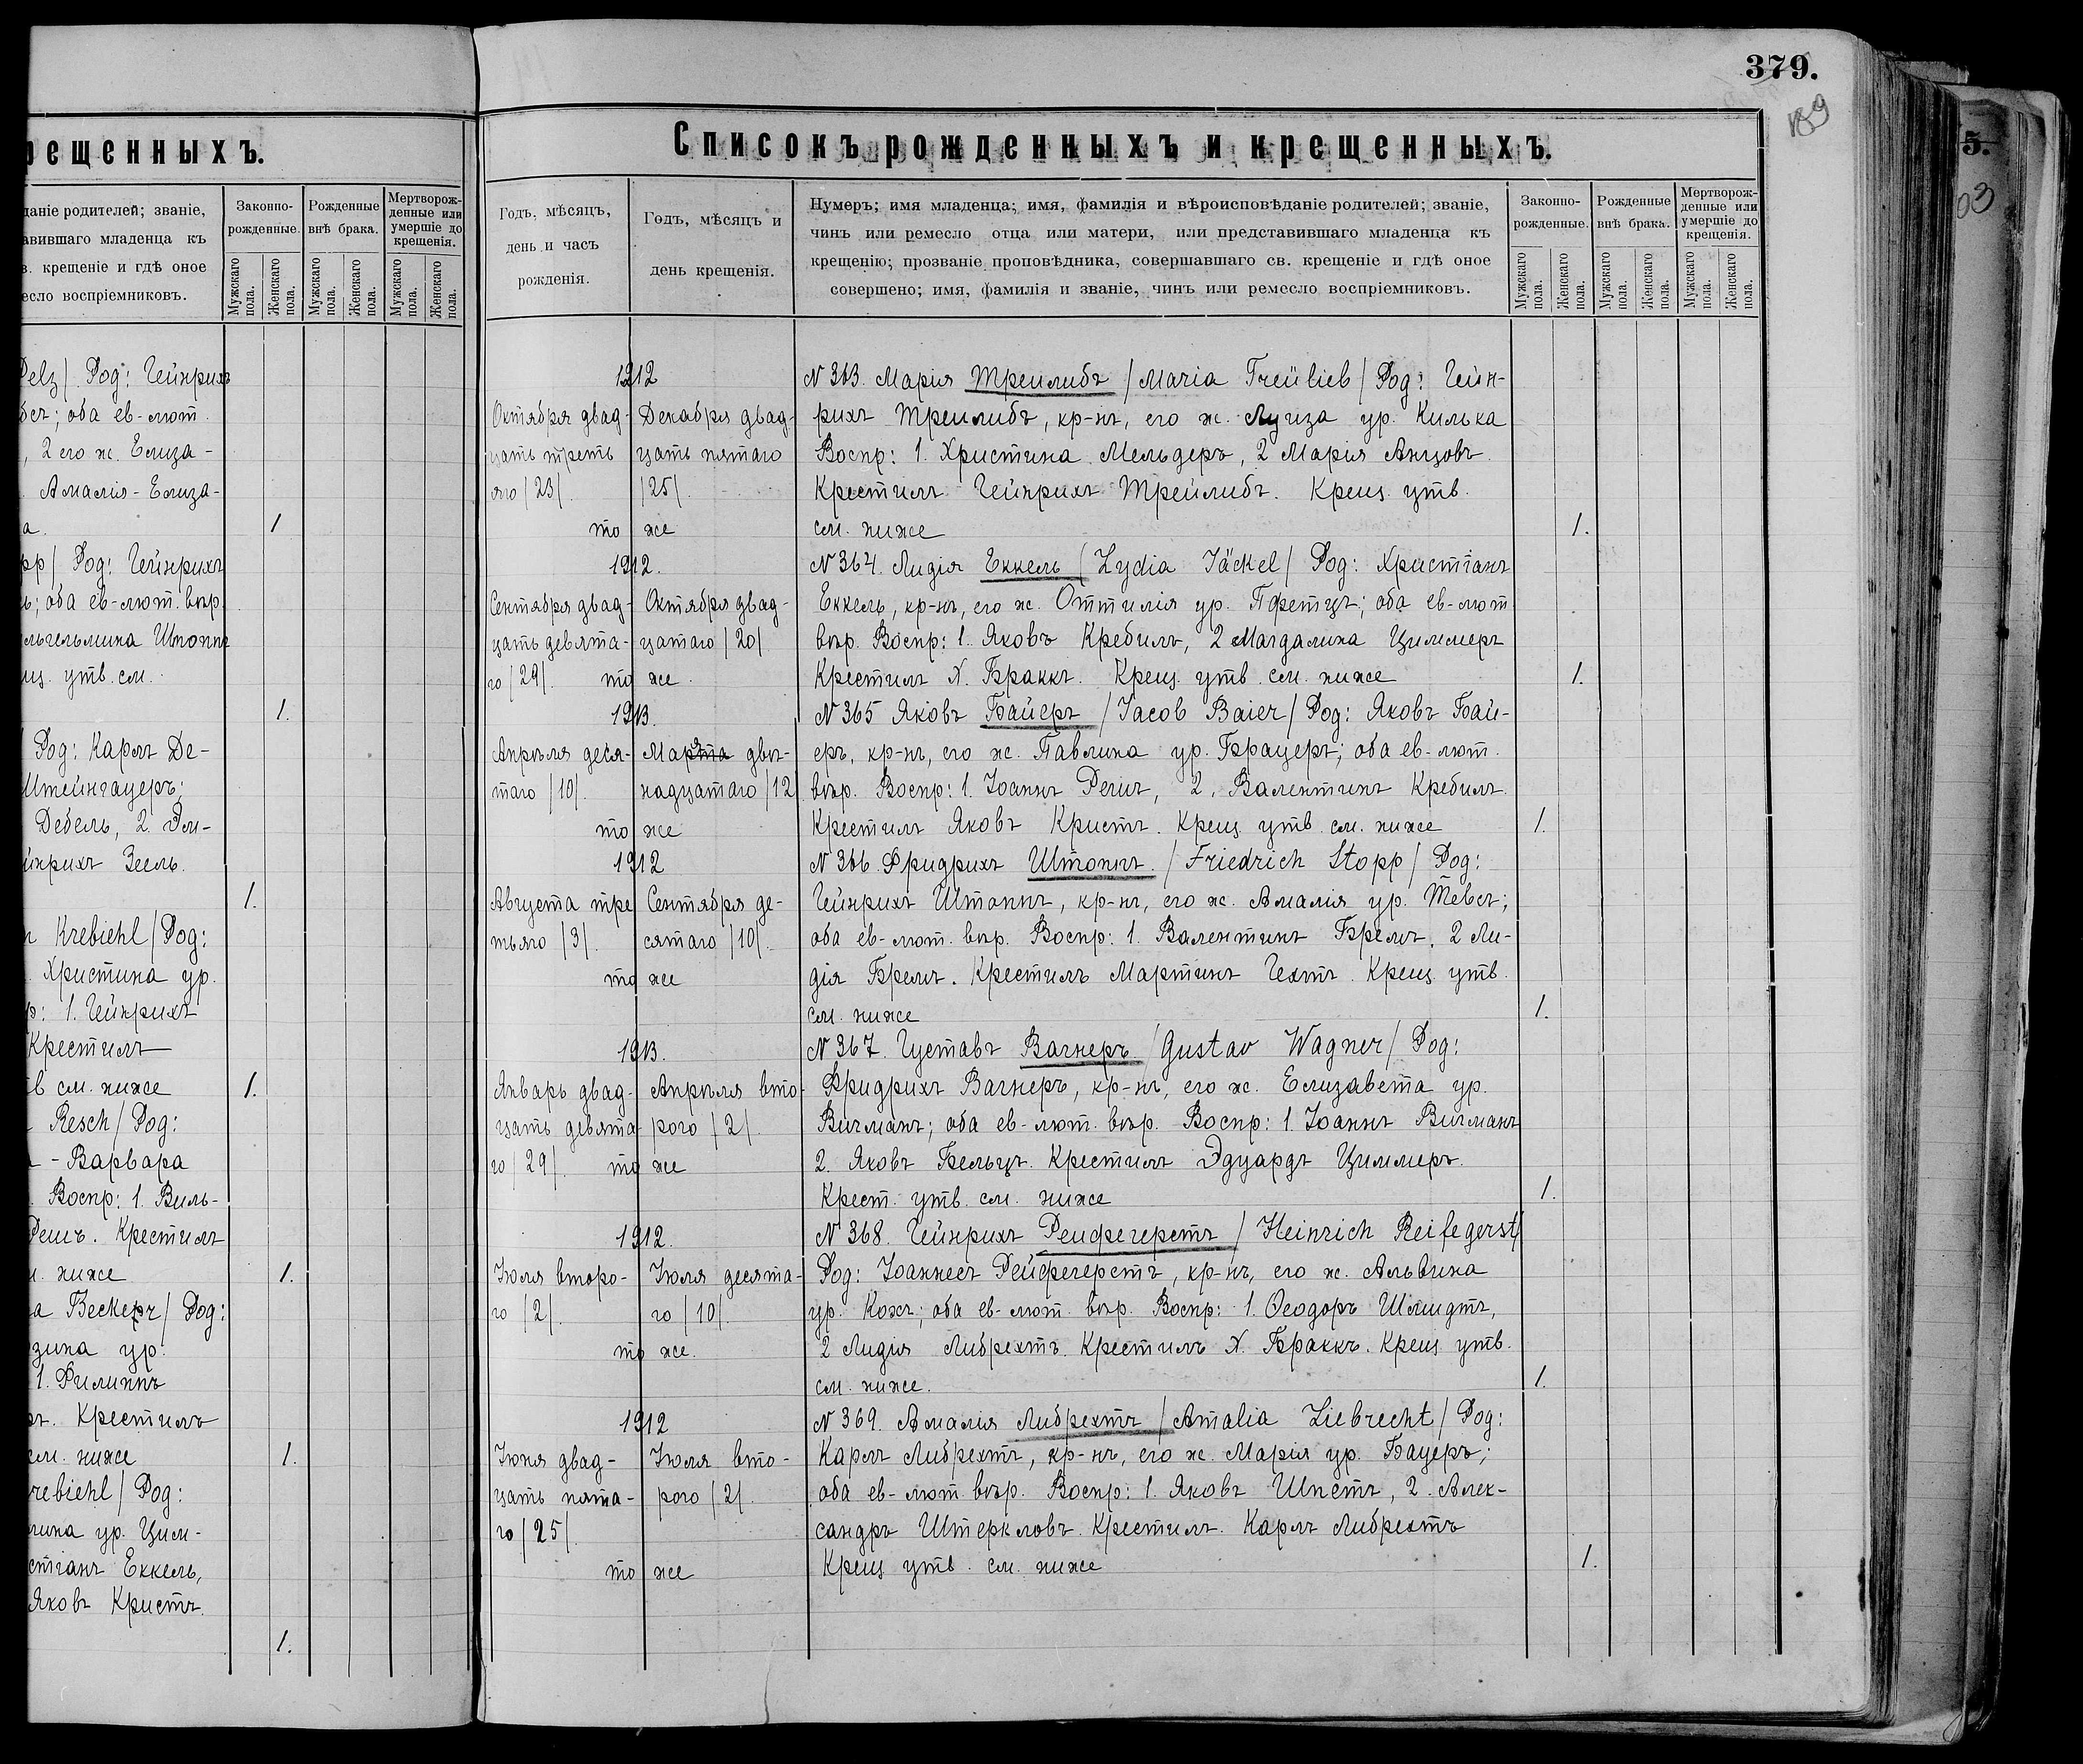 рещенныхъ.
даніе родителей; званіе,
авившаго младенца къ
в. крещеніе и гдѣ оное
есло воспріемниковъ.
Законно-
рожденные.
Рожденные
внѣ брака.
Мертворож-
денные или
умершіе до
крещенія.
Мужскаго пола.
Женскаго пола.
Мужскаго пола.
Женскаго пола.
Мужскаго пола.
Женскаго пола.
Pelz/ Род: Гейнрихъ
бсъ; оба ев-лют.
, 2 его ж. Елиза-
. Амалія-Елиза-
а. 1
рр/ Род: Гейнрихъ
ь; оба ев-лют. вѣр.
льгельмина Штоппъ
ещ. утв. см.
1.
Род: Карлъ Де-
Штейнгауеръ;
Дебель, 2. Эм-
йнрихъ Зеель.
1.
n Krebiehl/ Род:
. Христина ур.
р: 1. Гейнрихъ
Крестилъ
тв см. ниже 1.
Resch/ Род:
а-Варвара
. Воспр: 1. Виль-
Решъ. Крестилъ
м. ниже 1.
а Beckер/ Род:
зина ур.
1. Филиппъ
ръ. Крестилъ
см. ниже 1.
rebiehl/ Род:
лина ур. Цим-
стіанъ Еккель,
Яковъ Кристъ.
1.
379.
189
Списокъ рожденныхъ и крещенныхъ.
Годъ, мѣсяцъ,
день и часъ
рожденія.
Годъ, мѣсяцъ и
день крещенія.
Нумеръ; имя младенца; имя, фамилія и вѣроисповѣданіе родителей; званіе,
чинъ или ремесло отца или матери, или представившаго младенца къ
крещенію; прозваніе проповѣдника, совершавшаго св. крещеніе и гдѣ оное
совершено; имя, фамилія и званіе, чинъ или ремесло воспріемниковъ.
Законно-
рожденные.
Рожденные
внѣ брака.
Мертворож-
денные или
умершіе до
крещенія.
Мужскаго пола.
Женскаго пола.
Мужскаго пола.
Женскаго пола.
Мужскаго пола.
Женскаго пола.
1912 N 363. Марія Трейлибъ /Maria Treülieb/ Род: Гейн-
Октября двад- Декабря двад- рихъ Трейлибъ, кр-нъ, его ж. Луиза ур. Килька
цать треть цать пятаго Воспр: 1. Христина Мельдеръ, 2 Марія Анцовъ.
яго /23/. /25/. Крестилъ Гейнрихъ Трейлибъ. Крещ. утв.
то же см. ниже 1.
1912. N 364. Лидія Еккель /Lydia Jäckel/ Род: Христіанъ
Сентября двад- Октября двад- Еккель, кр-нъ, его ж. Оттилія ур. Пфетцъ; оба ев-лют.
цать девята- цатаго /20/ вѣр. Воспр: 1. Яковъ Кребиль, 2 Магдалина Циммеръ
го /29/. то же. Крестилъ Х. Браккъ. Крещ. утв. см. ниже 1.
1913. N 365 Яковъ Байеръ /Jacob Baier/ Род: Яковъ Бай-
Апрѣля деся- Марта двѣ- еръ, кр-нъ, его ж. Павлина ур. Брауеръ; оба ев-лют.
таго /10/. надцатаго /12 вѣр. Воспр: 1. Іоаннъ Решъ, 2. Валентинъ Кребиль.
то же Крестилъ Яковъ Кристъ. Крещ. утв. см. ниже 1.
1912 N 366. Фридрихъ Штоппъ. /Friedrich Stopp/ Род:
Августа тре Сентября де- Гейнрихъ Штоппъ, кр-нъ, его ж. Амалія ур. Тевсъ;
тьяго /3/. сятаго /10/. оба ев-лют. вѣр. Воспр: 1. Валентинъ Бремъ, 2 Ли-
то же дія Бремъ. Крестилъ Мартинъ Гехтъ. Крещ. утв.
см. ниже 1.
1913. N 367. Густавъ Вагнеръ /Gustav Wagner/ Род:
Январь двад- Апрѣля вто- Фридрихъ Вагнеръ, кр-нъ, его ж. Елизавета ур.
цать девята- рого /2/. Вигманъ; оба ев-лют. вѣр. Воспр: 1. Іоаннъ Вигманъ
го /29/. то же 2. Яковъ Бельцъ. Крестилъ Эдуардъ Циммеръ.
Крест. утв. см. ниже 1.
1912. N 368. Гейнрихъ Рейфегерстъ /Heinrich Reifegerst/
Іюля второ- Іюля десята- Род: Іоаннесъ Рейфегерстъ, кр-нъ, его ж. Альвина
го /2/. го /10/. ур. Кохъ; оба ев-лют. вѣр. Воспр: 1. Ѳеодоръ Шмидтъ,
то же. 2 Лидія Либрехтъ. Крестилъ Х. Браккъ. Крещ утв.
см. ниже. 1.
1912 N 369. Амалія Либрехтъ /Amalia Liebrecht/ Род:
Іюня двад- Іюля вто- Карлъ Либрехтъ, кр-нъ, его ж. Марія ур. Бауеръ;
цать пята- рого /2/. оба ев-лют. вѣр. Воспр: 1. Яковъ Шпетъ, 2. Алек-
го /25/. сандръ Штеркловъ. Крестилъ Карлъ Либрехтъ
то же Крещ утв. см. ниже 1.
5.
03